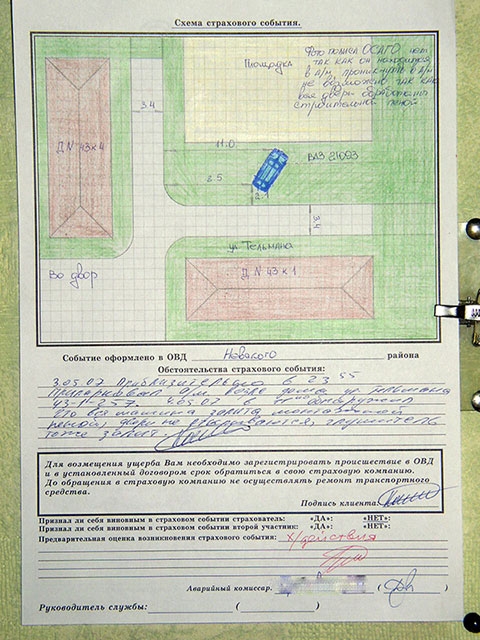 Схема страхового события.
Фото полиса ОСАГО нет,
так как он находится
в а/м, проникнуть в а/м
не возможно так как
все двери обработаны
строительной пеной
Площадка
3.4
11.0
8.5
ВАЗ 21093
2.1
3.4
Д N 43 к 4
ул Тельмана
Д N 43 к 1
Во двор
Событие оформлено в ОВД Невского района
Обстоятельства страхового события:
3.05.07 Приблизительно в 23 55
Припарковал а/м возле дома ул Тельмана
43-1 4.05.07 в обнаружил
что вся машина залита монтажной
пеной, двери не открываются, глушитель
тоже залит
Для возмещения ущерба Вам необходимо зарегистрировать происшествие в ОВД
и в установленный договором срок обратиться в свою страховую компанию.
До обращения в страховую компанию не осуществлять ремонт транспортного
средства.
Подпись клиента:
Признал ли себя виновным в страховом событии страхователь: «ДА»: «НЕТ»:
Признал ли себя виновным в страховом событии второй участник: «ДА»: «НЕТ»:
Предварительная оценка возникновения страхового события: х/действия
Аварийный комиссар. ( )
Руководитель службы: ( )